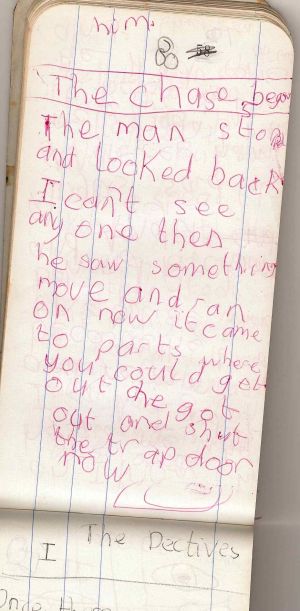 him.
The chase began
The man stop
and looked back
I can't see
any one then
he saw something
move and ran
on now it came
to parts where
you could get
out he got
out and shut
the trapdoor
now
The Dectives
I
Once